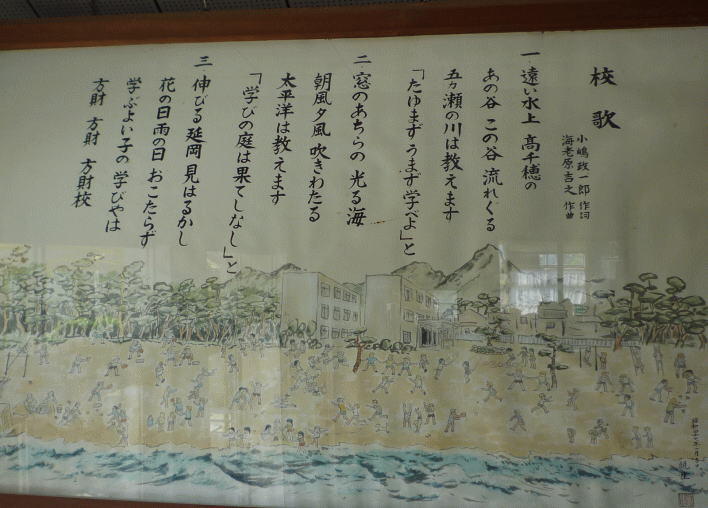 校歌
小嶋政一郎 作詞
海老原吉之 作曲
一 遠い水上 高千穂の
あの谷 この谷 流れくる
五ヶ瀬の川は教えます
「たゆまず うまず 学べよ」と
二 窓のあちらの 光る海
朝風夕風 吹きわたる
太平洋は教えます
「学びの庭は果てしなし」と
三 伸びる延岡 見はるかし
花の日雨の日 おこたらず
学ぶよい子の 学びやは
方財 方財 方財校